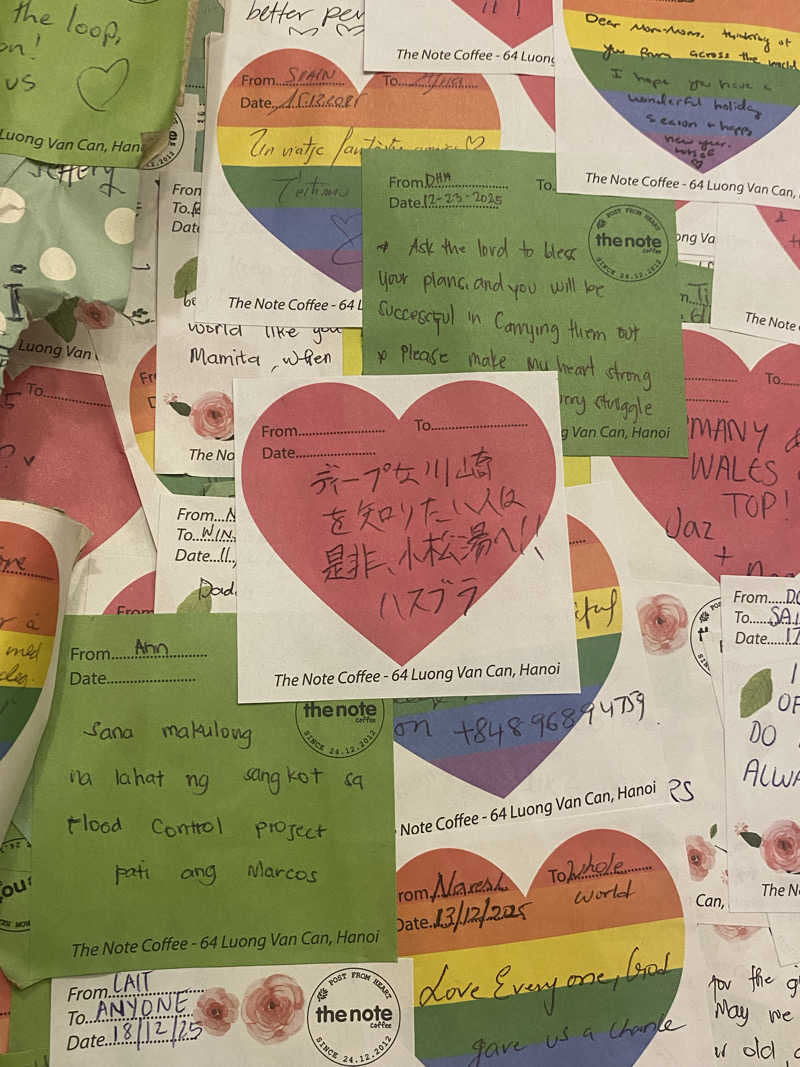 the loop,
on!
us
Luong Van Can, Hanoi
better per
The Note Coffee - 64 Luong
From SPAIN To
Date 15.12.2025
Un viaje
The Note Coffee - 64 L
Dear Mom-Mom, thinking of
you from across the world
I hope you have a
wonderful holiday
season + happy
new year.
The Note Coffee - 64 Luong Van Can,
Jeffery
From
To
Date
be
world like you
Mamita, when
The No
From DHA To
Date 12-23-2025
POST FROM HEART
the note
coffee
SINCE 24.12.2012
Ask the lord to bless
Your plans, and you will be
Successful in Carrying them out
Please make my heart strong
struggle
g Van Can, Hanoi
ong Va
The Note
Luong Van
To
From
Date
To
ディープな川崎
を知りたい人は
是非、小松湯へ!!
ハスブラ
The Note Coffee - 64 Luong Van Can, Hanoi
To
MANY &
WALES
TOP!
Jaz
+
From N
To WIN
Date 11.
Dad
From
From Ann
Date
the note
coffee
SINCE 24.12.2012
Sana makulong
na lahat ng sangkot sa
Flood Control project
pati ang Marcos
The Note Coffee - 64 Luong Van Can, Hanoi
on +84896894759
The Note Coffee - 64 Luong Van Can, Hanoi
From DO
To SAI
Date 17
I
OF
DO
ALWA
The N
Can,
From Naresh To Whole
world
Date 13/12/2025
Love Everyone, God
gave us a chance
From LAIT
To ANYONE
Date 18/12/25
POST FROM HEART
the note
coffee
SINCE 24.12.2012
for the g
May we
old